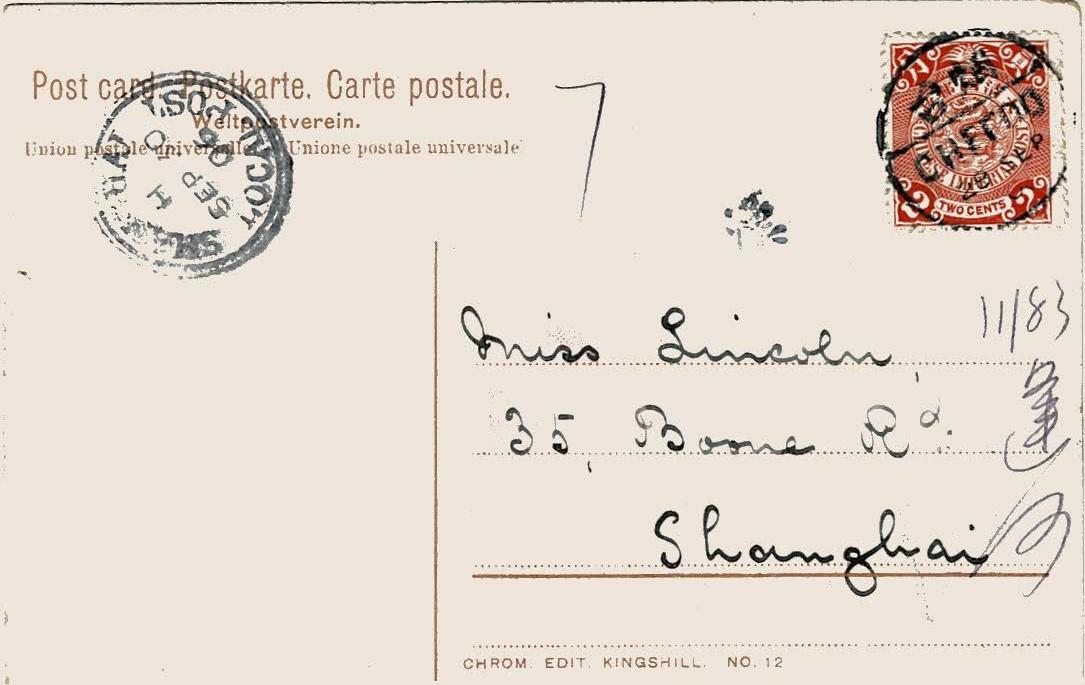 Post card. Postkarte. Carte postale.
Weltpostverein.
Union postale universelle. Unione postale universale
7
LOCAL POST
SHANGHAI
SEP
06
TWO CENTS
2 2
11/83
Miss Lincoln
35, Boone Rd.
Shanghai
CHROM. EDIT. KINGSHILL. NO. 12